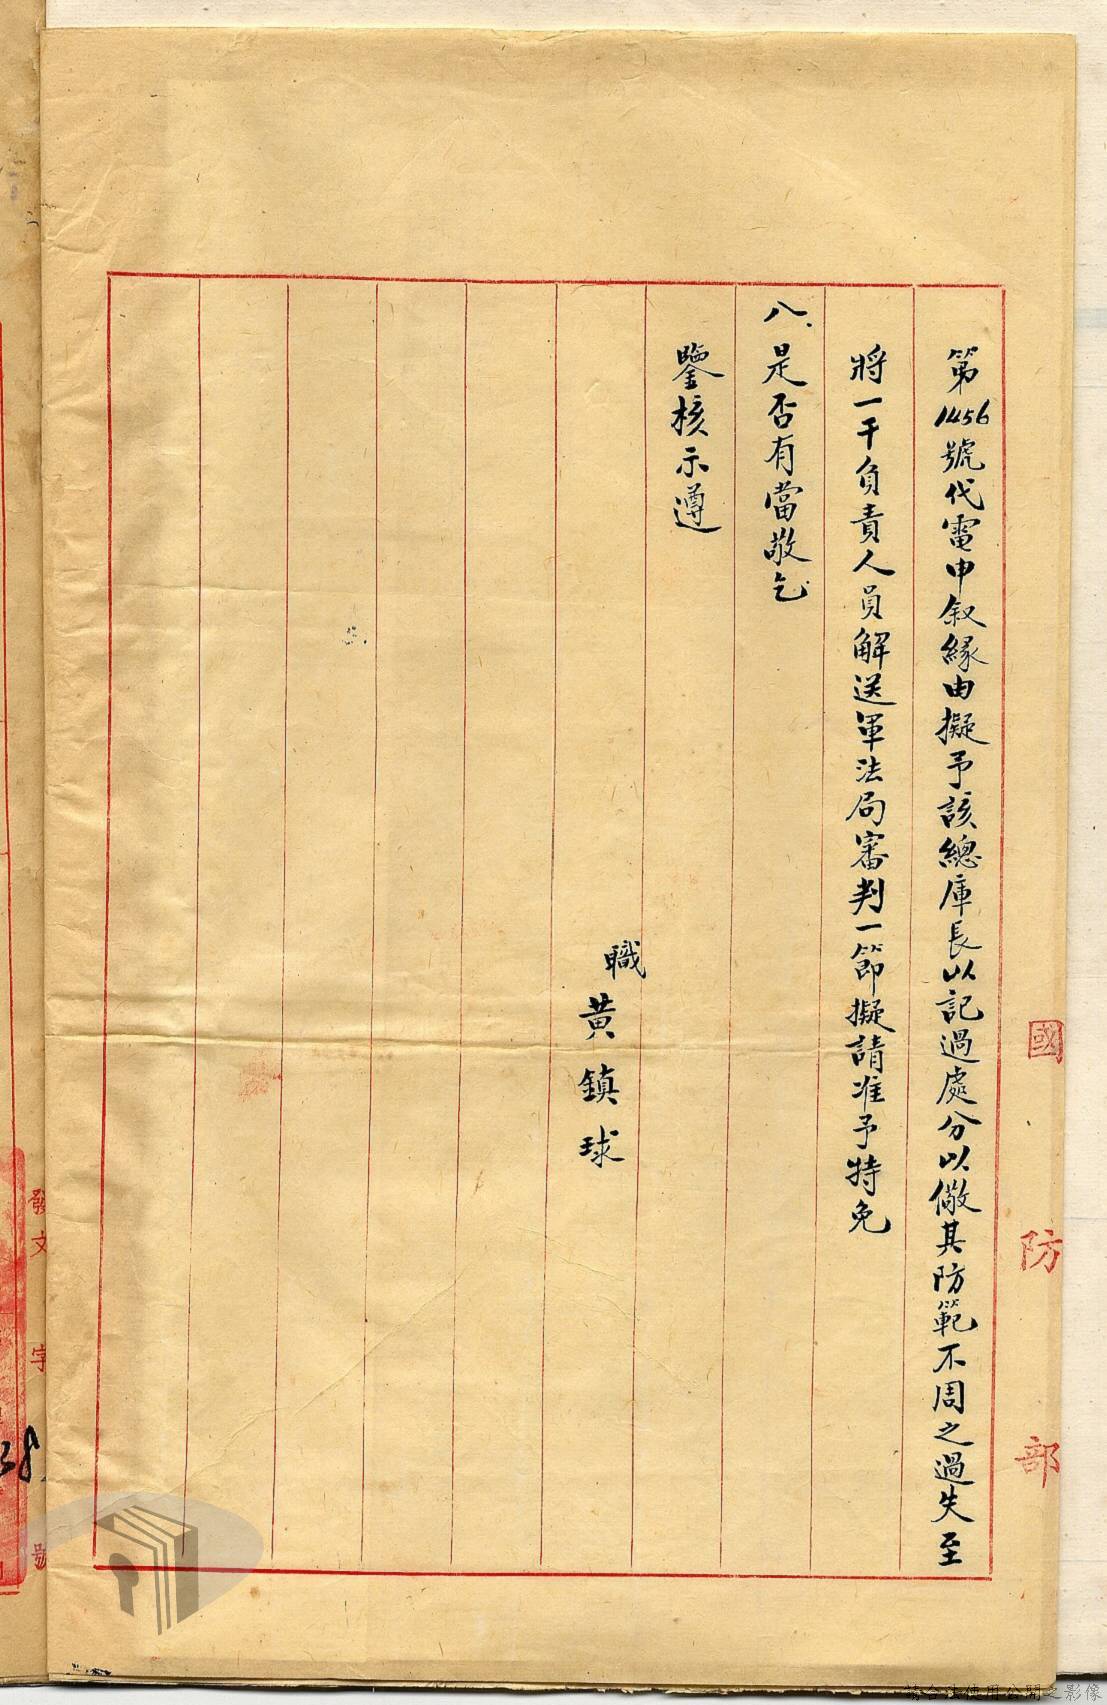 國防部
第1456號代電申叙緣由擬予該總庫長以記過處分以儆其防範不周之過失至
將一干負責人員解送軍法局審判一節擬請准予特免
八、是否有當敬乞
鑒核示遵
職黃鎮球
發文 字 號
38
請合法使用公開之影像